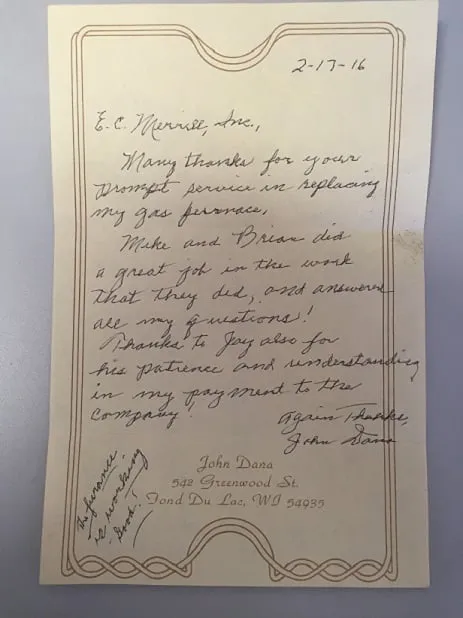 2-17-16
E.C. Merrill, Inc.,
Many thanks for your
prompt service in replacing
my gas furnace.
Mike and Brian did
a great job in the work
that they did, and answered
all my questions!
Thanks to Jay also for
his patience and understanding
in my payment to the
company!
Again Thanks,
John Dana
The furance
is working
Good!
John Dana
542 Greenwood St.
Fond Du Lac, WI 54935